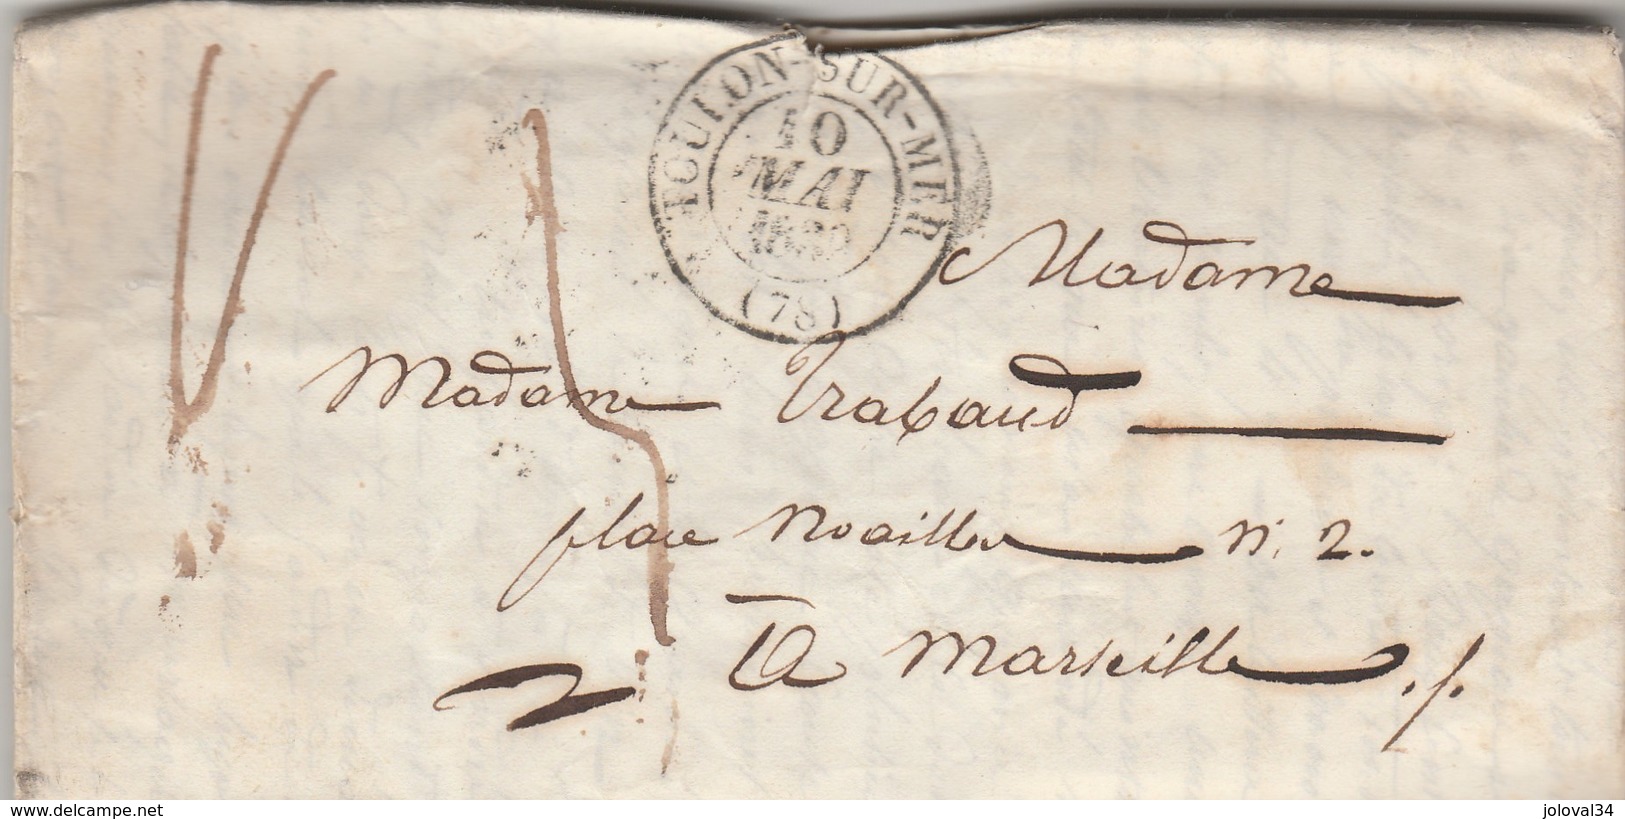 TOULON-SUR-MER
10
MAI
(78)
Madame
Madame Trabaud
place Noailles n. 2.
A Marseille
delcampe.net
joloval34